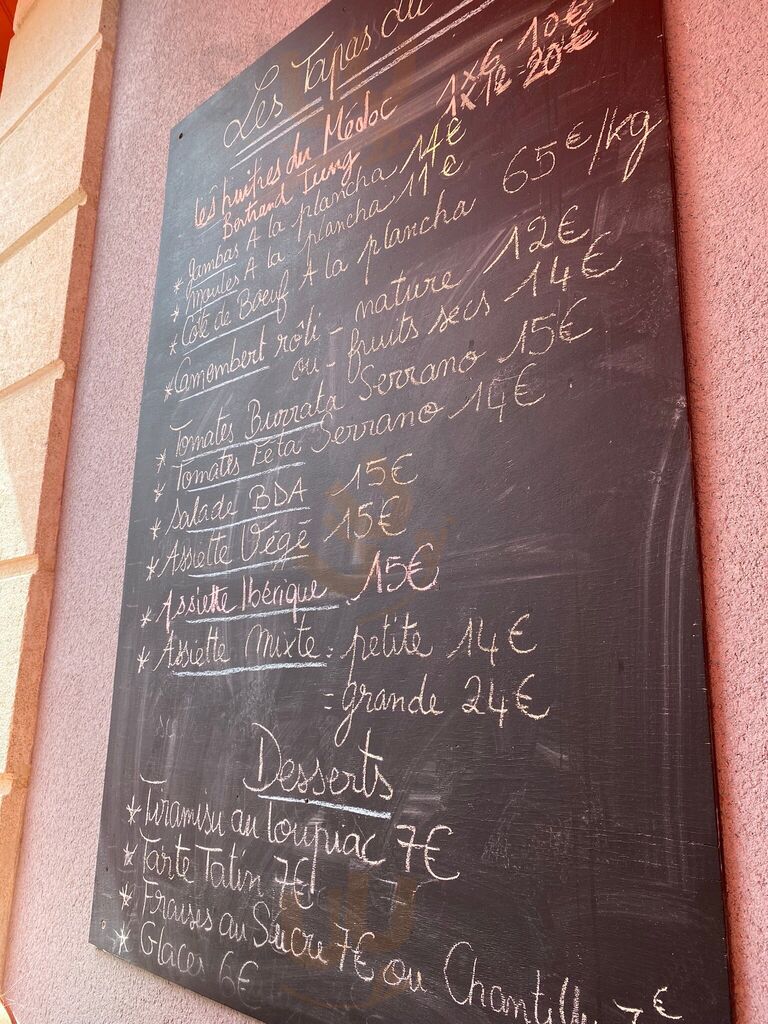 Les Tapas du
Les huîtres du Médoc 1x6 10€
Bertrand 1x12 20€
* Gambas A la plancha 14€
* Moules A la plancha 11€
* Côte de Boeuf A la plancha 65€/kg
* Camembert rôti - nature 12€
ou - fruits secs 14€
* Tomates Burrata Serrano 15€
* Tomates Feta Serrano 14€
* Salade BDA 15€
* Assiette Végé 15€
* Assiette Ibérique 15€
* Assiette Mixte = petite 14€
= grande 24€
Desserts
* Tiramisu au Loupiac 7€
* Tarte Tatin 7€
* Fraises au Sucre 7€ ou Chantilly 7€
* Glaces 6€